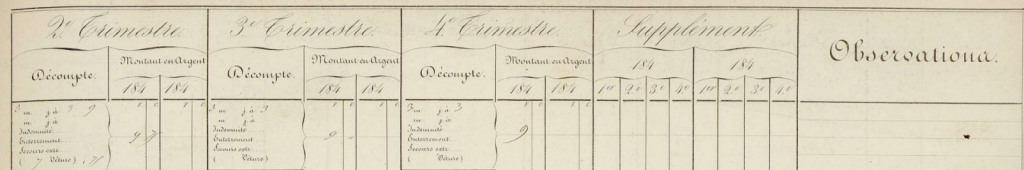 2e Trimestre. 3e Trimestre. 4e Trimestre. Supplément
Décompte. Montant en Argent Décompte. Montant en Argent Décompte. Montant en Argent 184 184 Observations.
184 184 184 184 184 184 1er 2e 3e 4e 1er 2e 3e 4e
3 m. j à 3 9 m. j à 3 3 m. j à 3
m. j à m. j à m. j à
Indemnité Indemnité Indemnité
Enterrement. 9 Enterrement. 9 Enterrement. 9
Secours extr. Secours extr. Secours extr.
( 7 Vêture) ( Vêture) ( Vêture)